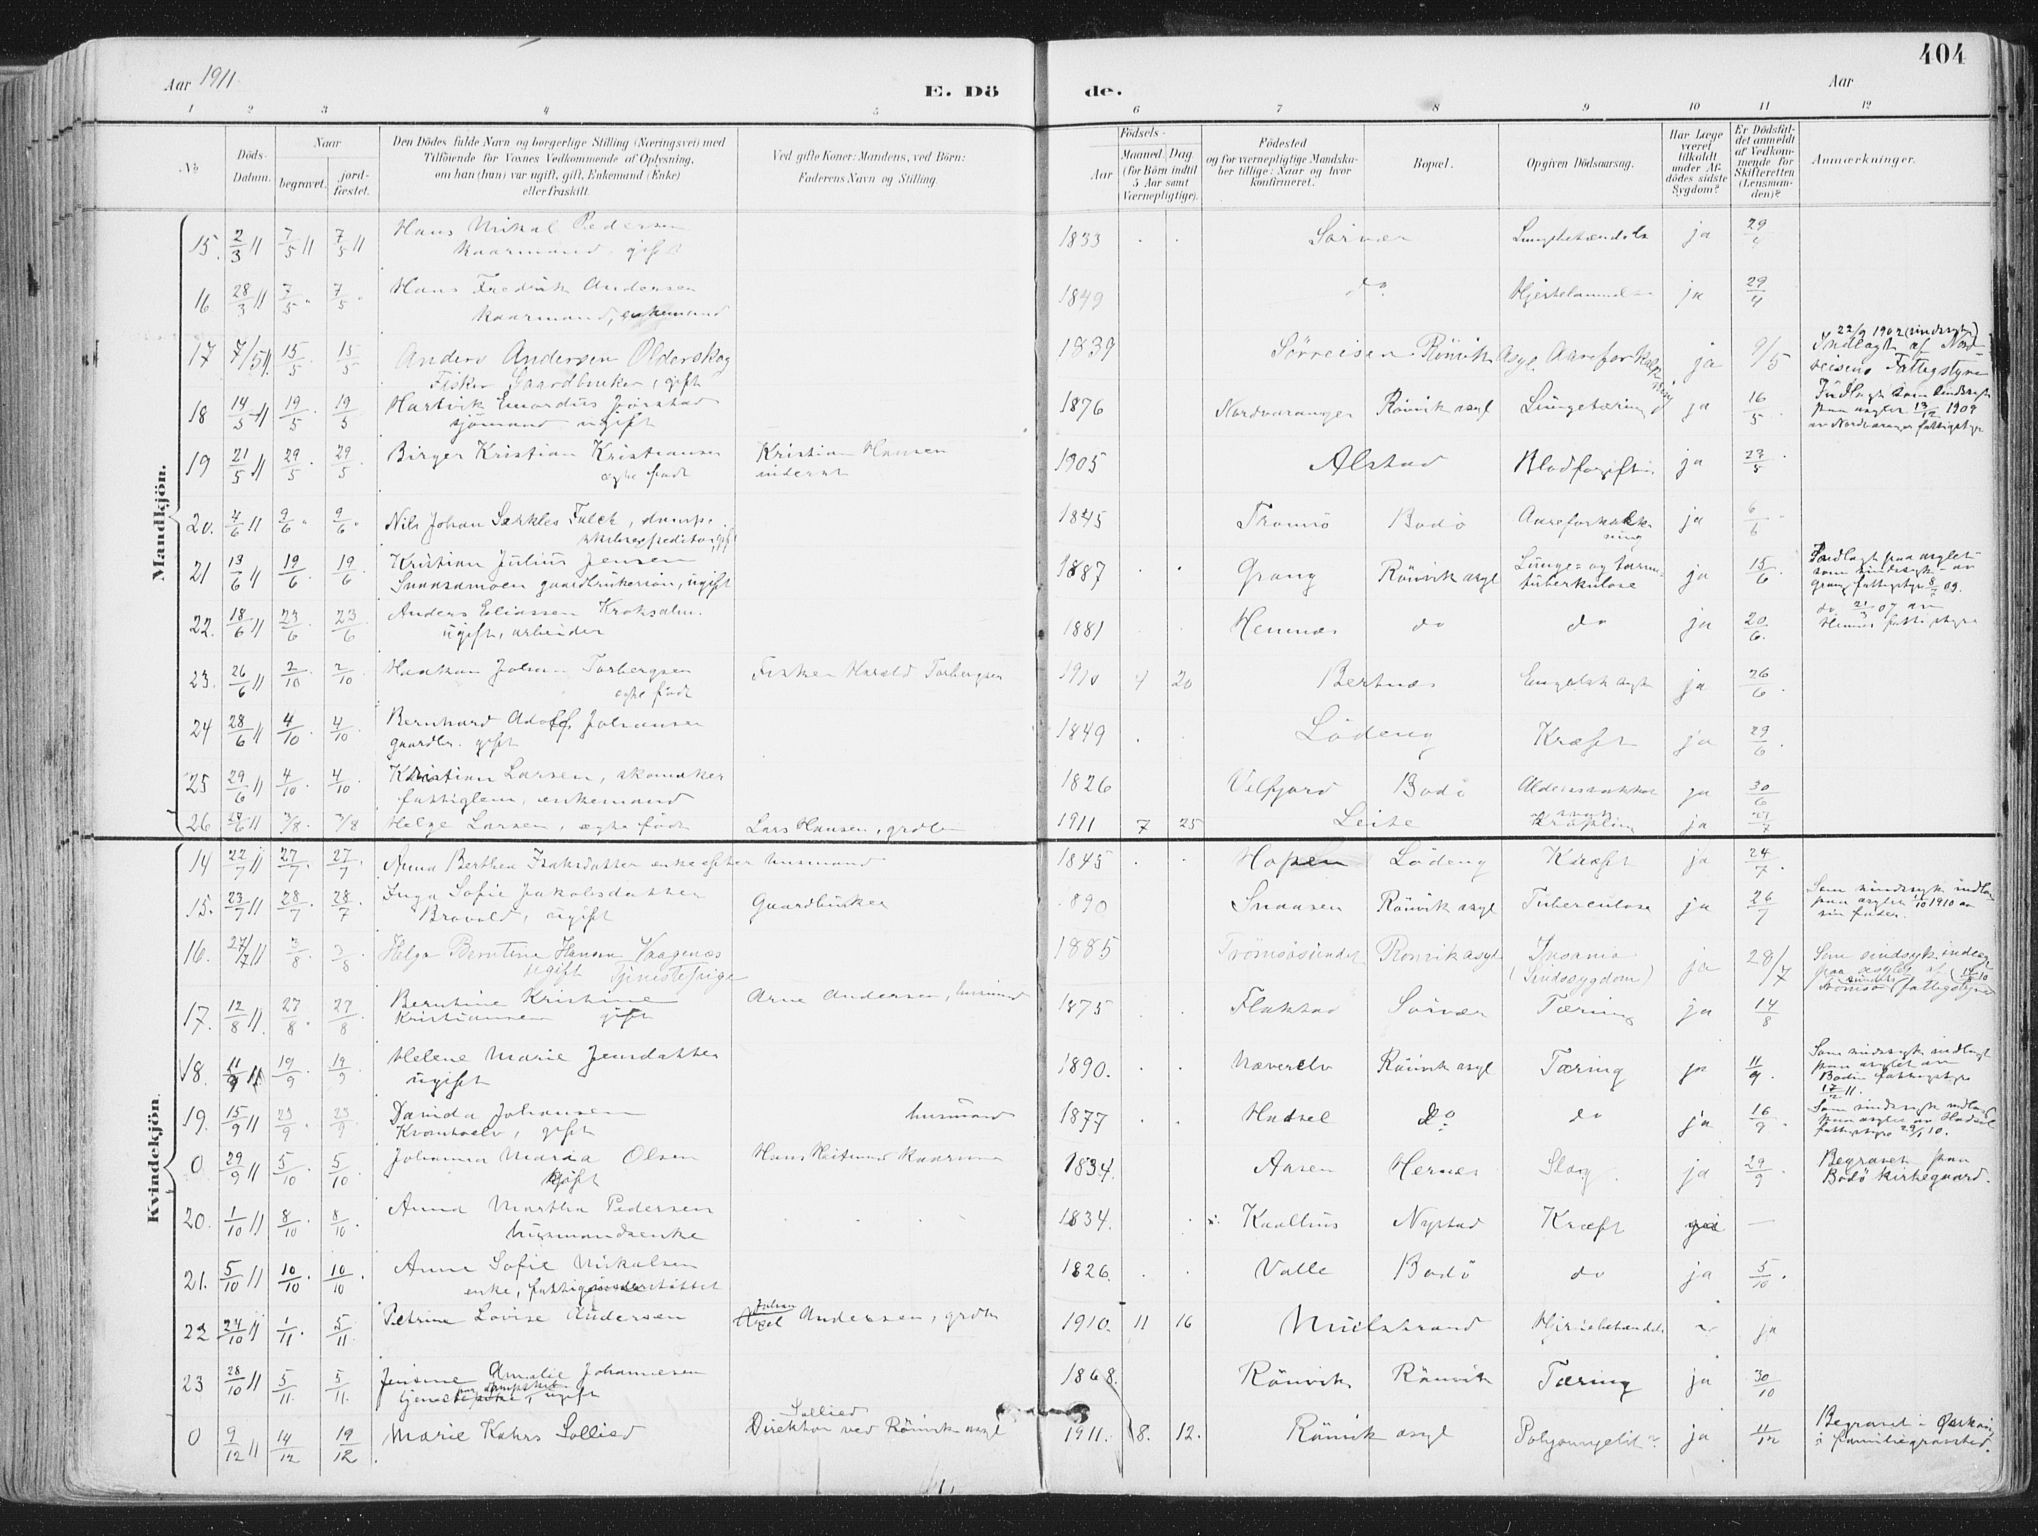 Aar 1911
E. Dö
de.
Aar
404
1 2 3 4 5 6 7 8 9 10 11 12
No
Döds-Datum.
Naar
begravet.
jord-fæstet.
Den Dödes fulde Navn og borgerlige Stilling (Næringsvei) med
Tilföiende for Voxnes Vedkommende af Oplysning,
om han (hun) var ugift, gift, Enkemand (Enke)
eller fraskilt.
Ved gifte Koner: Mandens, ved Börn:
Faderens Navn og Stilling.
Födsels-
Aar
Maaned. Dag
(for Börn indtil
5 Aar samt
Værnepligtige).
Födested
og for værnepligtige Mandska-
ber tillige: Naar og hvor
konfirmeret.
Bopæl.
Opgiven Dödsaarsag.
Har Læge
været
tilkaldt
under Af-
dödes sidste
Sygdom?
Er Dödsfal-
det anmeldt
af Vedkom-
mende for
Skifteretten
(Lensman-
den)?
Anmærkninger.
Mandkjön.
15. 2/3 11 7/5 11 7/5 11 Hans Mikal Pedersen 1833 Sörvær ja 29/4
kaarmand, gift
16 28/3 11 7/5 7/5 Hans Fredrik Andersen 1849 do ja 29/4
kaarmand, enkemand
17 7/5 11 15/5 15/5 Anders Andersen Olderskog 1839 Sörreisen Rönvik Asyl Aareforkalkning ja 9/5 22/9 1902 (sindssyk) Indlagt af Nord-
Fisker Gaardbruker, gift reisens Fattigstyre
18 14/5 11 19/5 19/5 Hartvik Jörstad 1876 Nordvaranger Rönvik asyl Lungetæring ja 16/5 Indlagt som sindssyk
sjömand ugift paa asylet 13/12 1909
av Nordvaranger fattigstyre
19 21/5 11 29/5 29/5 Birger Kristian Kristiansen Kristian Hansen 1905 Alstad Blodforgiftn. ja 23/5
ægte födt inderst
20. 4/6 11 9/6 9/6 Nils Johan Falck, 1845 Tromsö Bodö Aareforkalkning ja 6/6
21 13/6 11 19/6 19/6 Kristian Julius Jensen 1887 Grong Rönvik asyl Lunge- og tarm- ja 15/6 Indlagt paa asylet
Snaasamoen gaardbrukersön, ugift tuberkulose som sindssyk av
Grong fattigstyre
22. 18/6 11 23/6 23/6 Anders Eliassen 1881 Hemnes do do ja 20/6. do 21/3 07 av
ugift, arbeider Hemnes fattigstyre
23. 26/6 11 2/10 2/10 Haakon Johan Torbergsen Fisker Harald Torbergsen 1910 4 20 Bertnes Engelsk syke ja 26/6
ægte födt
24 28/6 11 4/10 4/10 Bernhard Adolf Johansen 1849 Löding Kræft ja 29/6
gaardbr. gift
25 29/6 11 4/10 4/10 Kristian Larsen, skomaker 1826 Velfjord Bodö ja 30/6
fattiglem, enkemand
26 11 3/8 3/8 Helge Larsen, ægte födt Lars Hansen, grdbr 1911 7 25 Leite ja 27/7
Kvindekjön.
14 22/7 11 27/7 27/7 Anna Berthea Isaksdatter enke efter husmand 1845 Hopen Löding Kræft ja 24/7
15. 23/7 11 28/7 28/7 Inga Sofie Jakobsdatter Gaardbruker 1890 Snaasen Rönvik asyl Tuberculose ja 26/7 Som sindssyk indlagt
Bravold, ugift paa asylet 1/10 1910 av
sin fader.
16. 27/7 11 3/8 3/8 Helga Berntine Hansen Vaagenæs 1885 Tromsösundet Rönvik asyl Insania ja 28/7 Som sindsyk indlagt
ugift Tjenestepige (Sindssygdom) paa asylet af
Tromsösundets fattigstyre
17. 12/8 11. 27/8 27/8 Berntine Kristine Arne Andersen, husmand 1875 Flakstad Sörvær Tæring ja 14/8
Kristiansen gift
18. 11/9 11 19/9 19/9 Helene Marie Jensdatter 1890. Næverelv Rönvik asyl Tæring ja 11/9 Som sindssyk indlagt
ugift paa asylet av
Bodin fattigstyre
17/2 11.
19. 15/9 11 23/9 23/9 Davida Johansen husmand 1877 Hadsel do do ja 16/9 Som sindssyk indlagt
gift paa asylet av Hadsel
fattigstyre
0 29/9 11 5/10 5/10 Johanna Maria Olsen Hans 1834. Aasen Hernes Slag ja 29/9 Begravet paa
gift Bodö kirkegaard.
20. 1/10 11 8/10 8/10 Anna Martha Pedersen 1834. Nystad Kræft ja —
husmandsenke
21. 5/10 11 10/10 10/10 Anne Sofie Mickalsen 1826. Valle Bodö do ja 5/10
enke, fattigunderstöttet
22 24/10 11 1/11 5/11 Petrine Lovise Andersen Johan Axel Andersen, grdbr 1910. 11 16 Mulstrand ja
23 28/10 11 5/11. 5/11. Jensine Amalie Johannesen 1868. Rönvik Rönvik Tæring ja 30/10
ugift
0 9/12 11 14/12 19/12 Marie Kahrs Sollied Sollied Direktör ved Rönvik asyl 1911. 8. 12. Rönvik asyl ja 11/12 Begravet i
i familiegravsted.